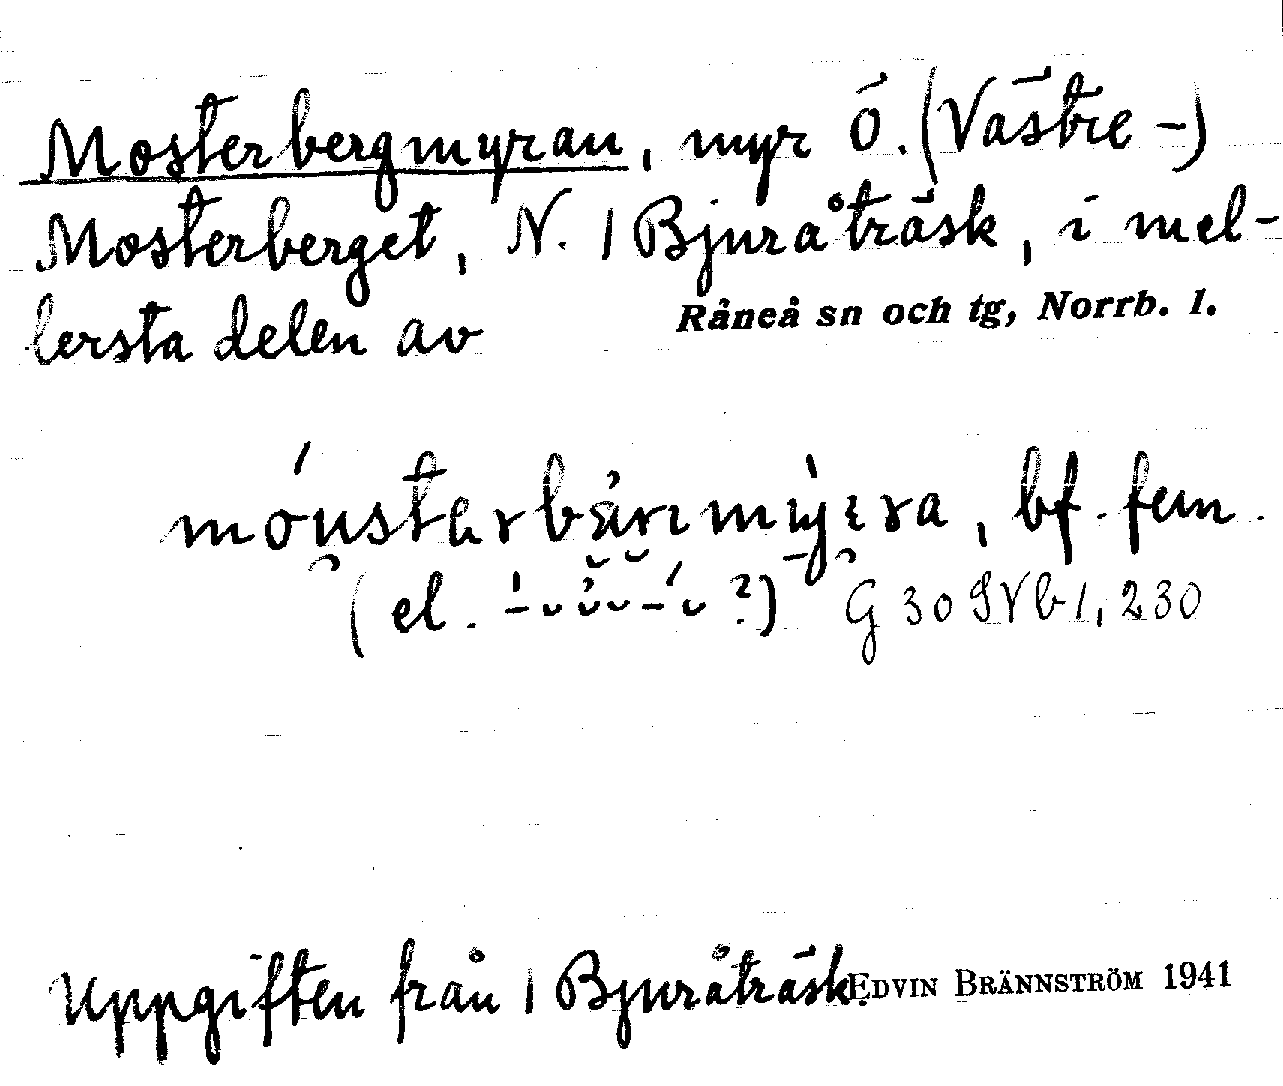 Mosterbergmyran, myr Ö. (Västre -)
Mosterberget, N. 1 Bjuråträsk, i mel-
lersta delen av Råneå sn och tg, Norrb. l.
bf. fem.
(el. ?) G 30 SVb 1, 230
Uppgiften från 1 Bjuråträsk. EDVIN BRÄNNSTRÖM 1941